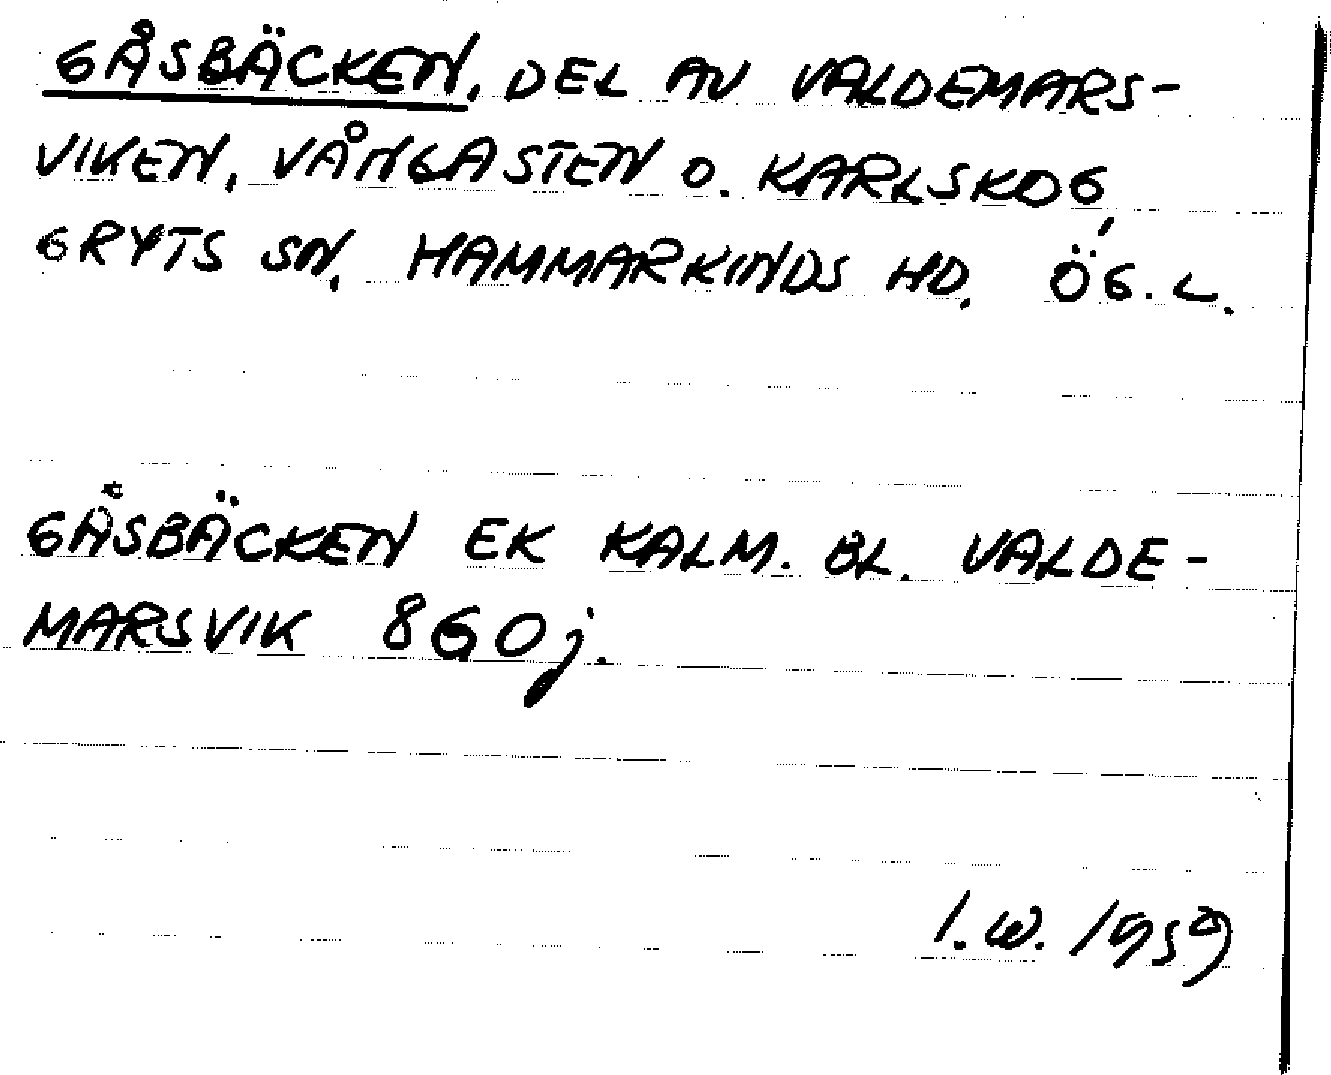 GÅSBÄCKEN, DEL AV VALDEMARS-
VIKEN, VÅNGASTEN O. KARLSKOG,
GRYTS SN, HAMMARKINDS HD, ÖG.L.
GÅSBÄCKEN EK KALM. BL. VALDE-
MARSVIK 860j.
I.W. 1959